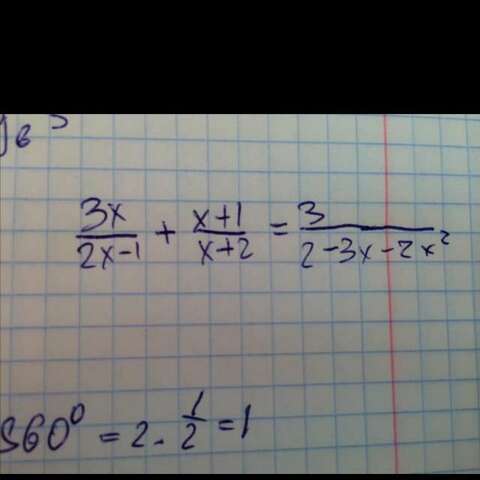 3x/(2x-1) + (x+1)/(x+2) = 3/(2-3x-2x²)
60° = 2 · 1/2 = 1